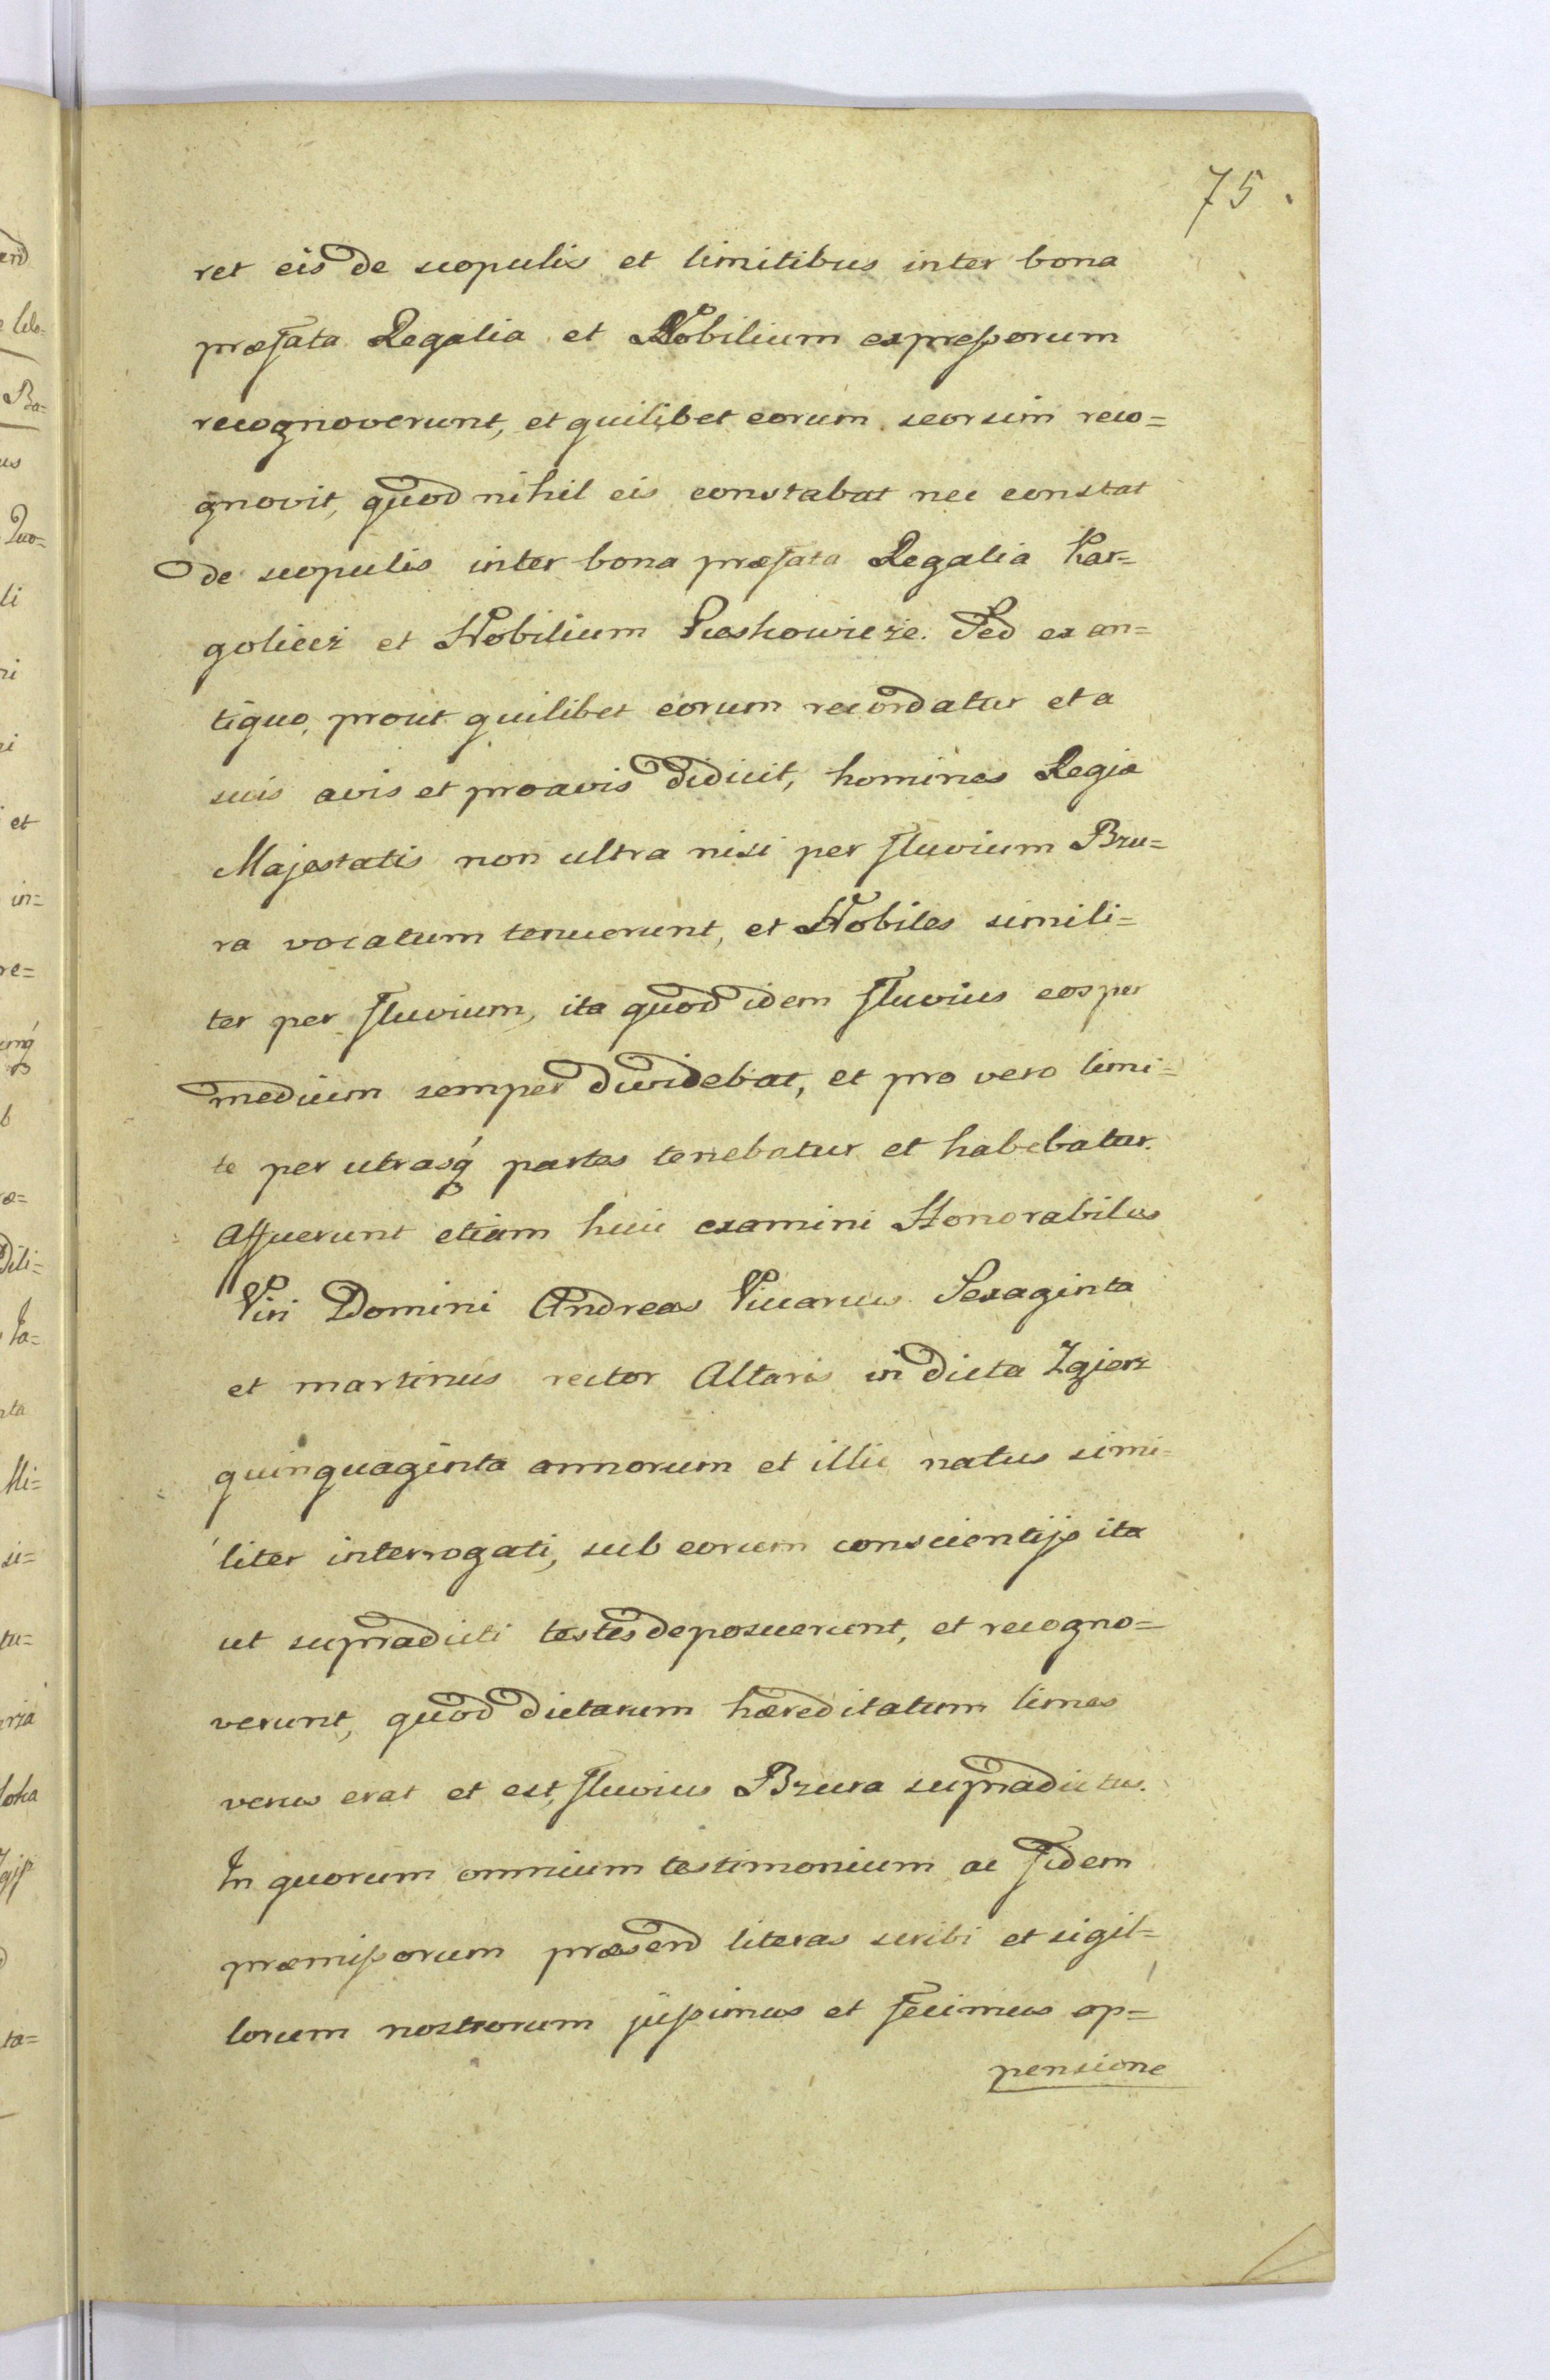 75.
ret eis de scopulis et limitibus inter bona
præfata Regalia et Nobilium expressorum
recognoverunt, et quilibet eorum seorsim reco=
gnovit, quod nihil eis constabat nec constat
de scopulis inter bona præfata Regalia Kar=
goliecz et Nobilium Proskowicze. Sed ex an=
tiquo, prout quilibet eorum recordatur et a
suis avis et proavis didicit, homines Regiæ
Majestatis non ultra nisi per fluvium Bzu=
ra vocatum tenuerunt, et Nobiles simili=
ter per fluvium, ita quod idem fluvius eos per
medium semper dividebat, et pro vero limi=
te per utrasq́ partes tenebatur et habebatur.
Affuerunt etiam huic examini Honorabiles
Viri Domini Andreas Vicarius Sexaginta
et martinus rector Altaris in dicta Zgierz
quinquaginta annorum et illic natus simi=
liter interrogati, sub eorum conscientijs ita
ut supradicti testes deposuerunt, et recogno=
verunt, quod dictarum hæreditatum limes
verus erat et est, fluvius Bzura supradictus.
In quorum omnium testimonium ac fidem
præmissorum præsend literas scribi et sigil=
lorum nostrorum jussimus et fecimus ap=
pensione